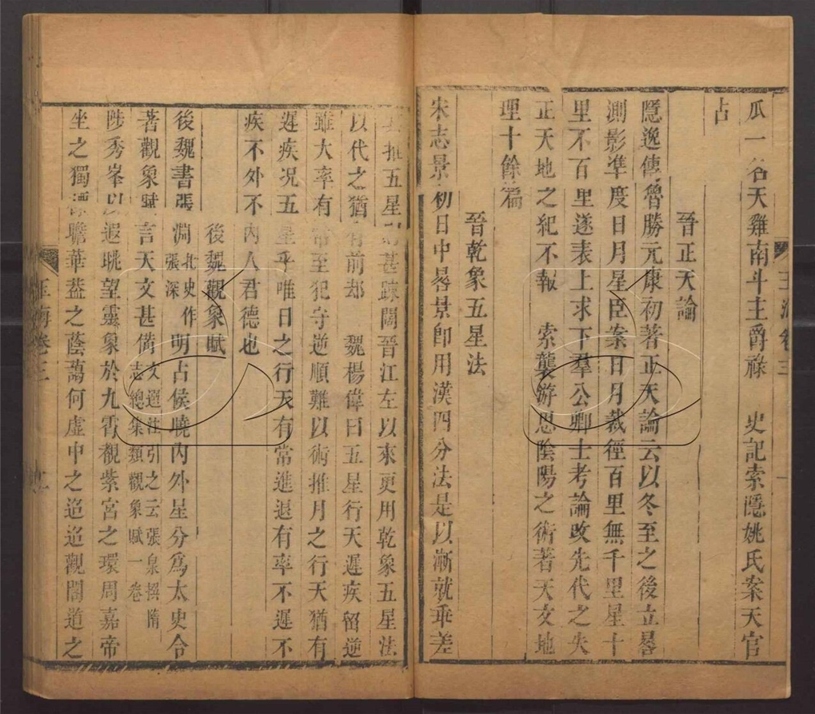 瓜一名天雞南斗主爵祿 史記索隱姚氏案天官
占
晉正天論
隱逸傳魯勝元康初著正天論云以冬至之後立晷
測影準度日月星臣案日月裁徑百里無千里星十
里不百里遂表上求下羣公卿士考論改先代之失
正天地之紀不報 索襲游思陰陽之術著天文地
理十餘篇
晉乾象五星法
宋志景初日中晷景即用漢四分法是以漸就乖差
其推五星則甚疎闊晉江左以來更用乾象五星法
以代之猶有前却 魏楊偉曰五星行天遲疾留逆
雖大率有常至犯守逆順難以術推月之行天猶有
遲疾况五星乎唯日之行天有常進退有率不遲不
疾不外不內人君德也
後魏觀象賦
後魏書張淵北史作張深明占候曉內外星分爲太史令
著觀象賦言天文甚備文選注引之云張泉撰隋志總集類觀象賦一卷
陟秀峯以遐眺望靈象於九霄覩紫宮之環周嘉帝
坐之獨標瞻華蓋之蔭藹何虛中之迢迢觀閣道之
玉海卷三